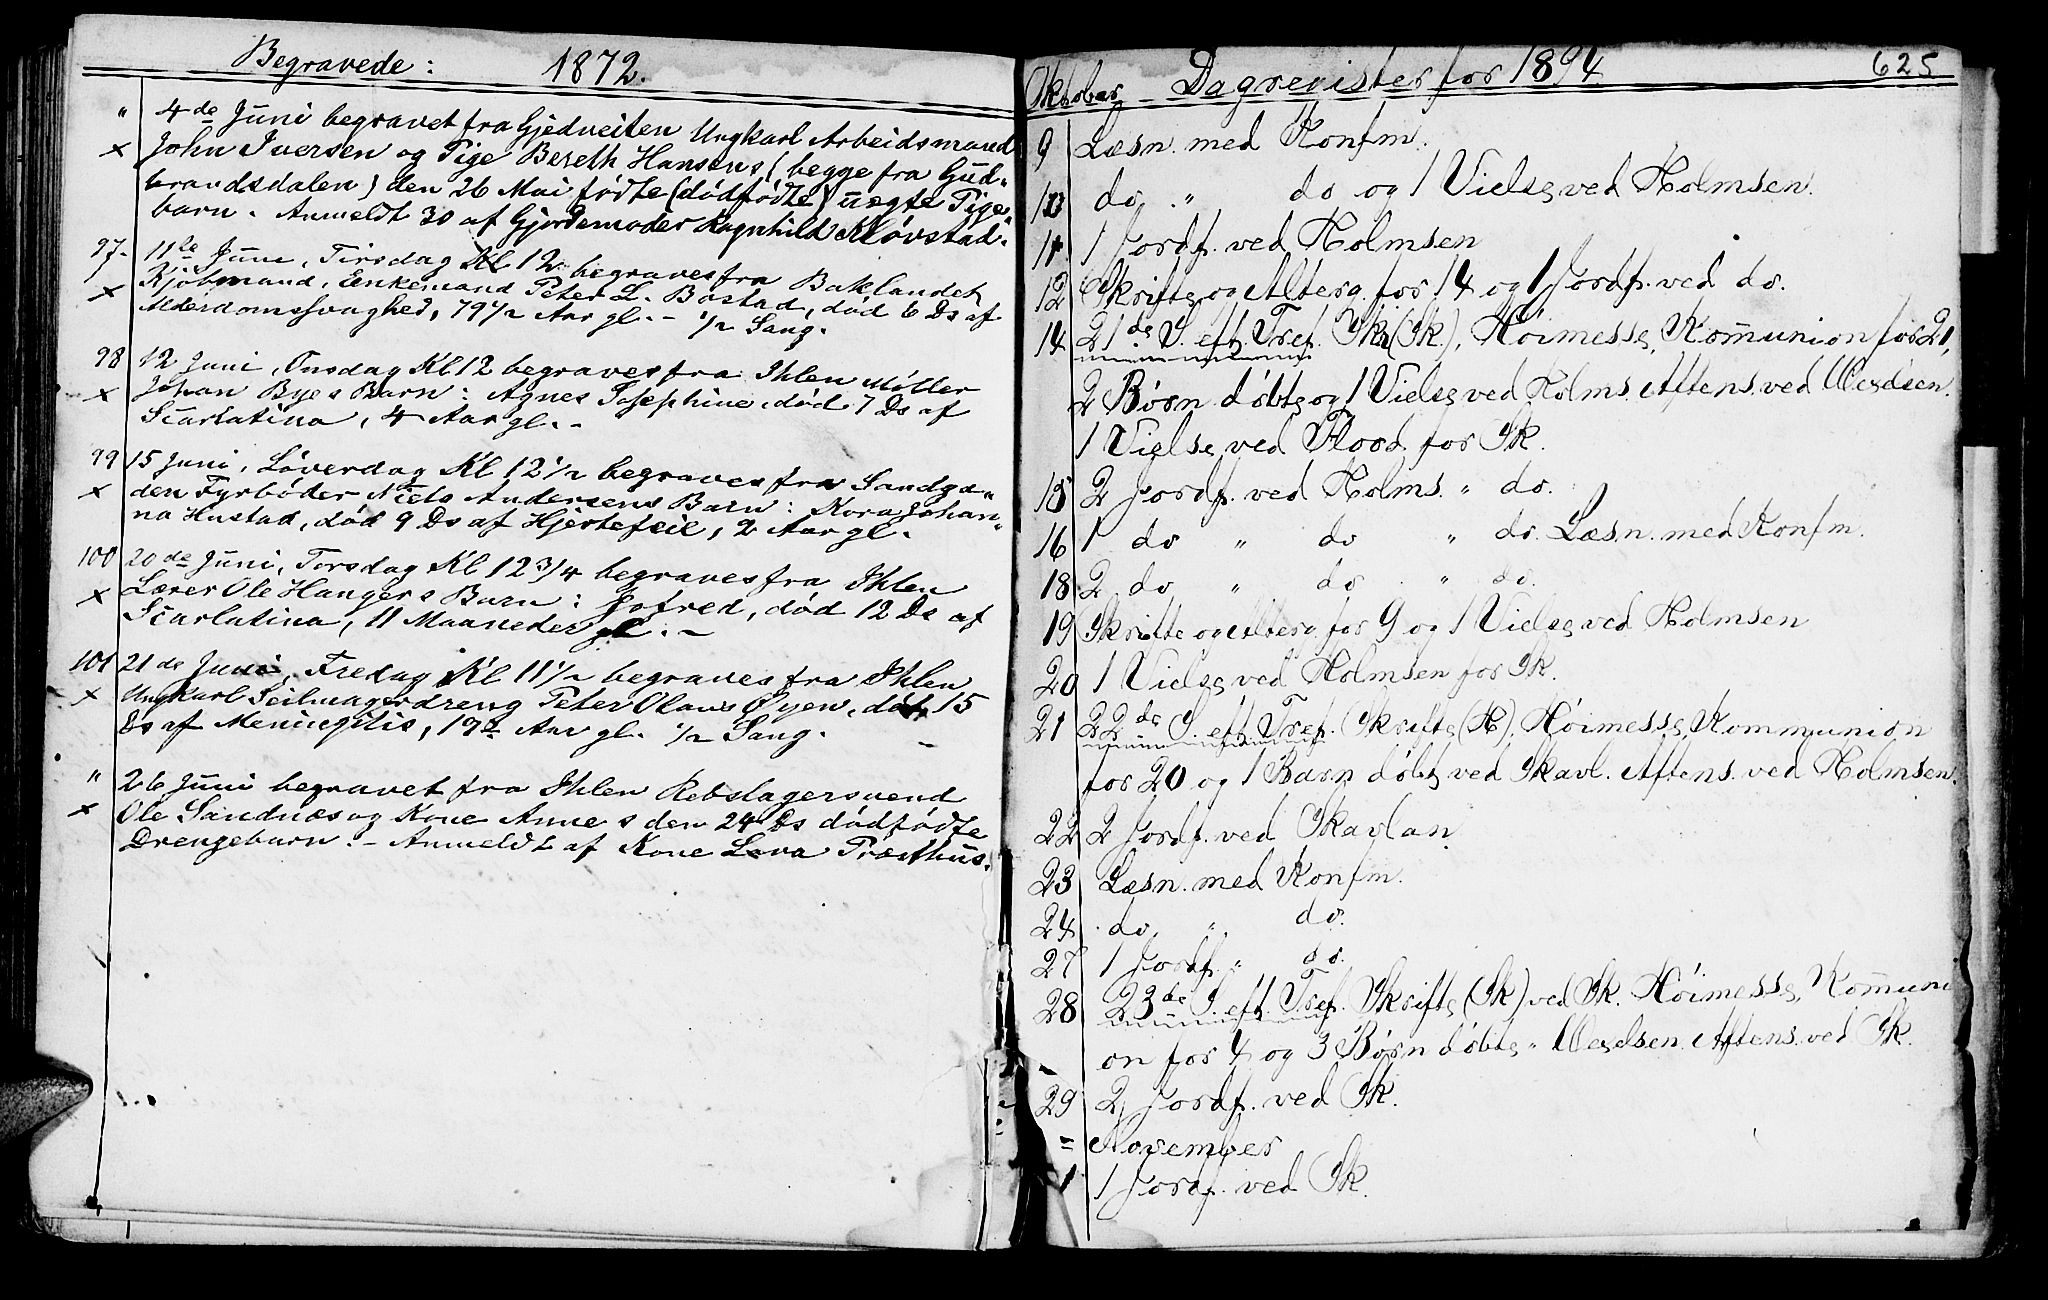 Begravede: 1872.
" 4de Juni begravet fra Gjedveiten Ungkarl Arbeidsmand
x John Iversen og Pige Bereth Hansens (begge fra Gud-
brandsdalen) den 26 Mai fødte (dødfødte) uægte Pige-
barn. Anmeldt 30 af Gjordemoder Ragnhild Kløvstad.
97. 11te Juni, Tirsdag Kl 12 begraves fra Baklandet
x Kjøbmand, Enkemand Peter L. Bostad, død 6 Ds af
Alderdomssvaghed, 79 1/2 Aar gl. - 1/2 Sang.
98 12 Juni, Onsdag Kl 12 begraves fra Ihlen Møller
x Johan Byes Barn: Agnes Josephine, død 7 Ds af
Scarlatina, 4 Aar gl. -
99 15 Juni, Løverdag Kl 12 1/2 begraves fra Sandga-
x den Fyrbøder Niels Andersens Barn: Kora Johan-
na Hustad, død 9 Ds af Hjertefeil, 2 Aar gl.
100 20de Juni, Torsdag Kl 12 3/4 begraves fra Ihlen
x Lærer Ole Hangers Barn: Gofred, død 12 Ds af
Scarlatina, 11 Maaneder gl. -
101 21de Juni, Fredag Kl 11 1/2 begraves fra Ihlen
x Ungkarl Seilmagerdreng Peter Olaus Øyen, død 15
Ds af Meningitis, 19 Aar gl. 1/2 Sang.
" 26 Juni begravet fra Ihlen Rebslagersvend
x Ole Sandnæs og Kone Anne s den 24 Ds dødfødte
Drengebarn. - Anmeldt af Kone Lova Præsthus.
Oktober Dagregister for 1894 625
9 Læsn. med Konfm.
10 do " do og 1 Vielse ved Holmsen.
11 1 Jordf. ved Holmsen
12 Skrifte og Alterg. for 14 og 1 Jordf. ved do.
14 21de S. eft. Tref. Skr (Sk.), Høimesse, Kommunion for 21,
2 Børn døbte og 1 Vielse ved Holms. Aftens. ved Wexelsen.
1 Vielse ved Flood for Sk.
15 2 Jordf. ved Holms. " do.
16 1 do " do " do. Læsn. med Konfm.
18 2 do " do " do.
19 Skrifte og Alterg. for 9 og 1 Vielse ved Holmsen
20 1 Vielse ved Holmsen for Sk.
21 22de S. eft. Tref. Skrifte (H), Høimesse, Kommunion
for 20 og 1 Barn døbt ved Skavl. Aftens. ved Holmsen.
22 2 Jordf. ved Skavlan.
23 Læsn. med Konfm.
24 do " do.
27 1 Jordf. " do.
28 23de S. eft. Tref. Skrifte (Sk) ved Sk. Høimesse, Kommuni
on for 4 og 3 Børn døbte " Wexelsen. Aftens. ved Sk.
29 2 Jordf. ved Sk.
= November
1 1 Jordf. ved Sk.